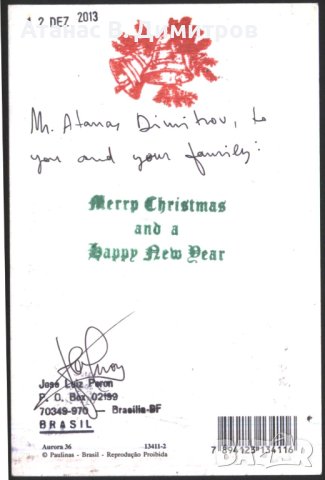 1 2 DEZ. 2013
Атанас В Димитров
Mr. Atanas Dimitrov, to
you and your family:
Merry Christmas
and a
Happy New Year
José Luiz Peron
P. O. Box 02199
70349-970 — Brasília-DF
BRASIL
Aurora 36 13411-2
© Paulinas - Brasil - Reprodução Proibida
7 894123 134116